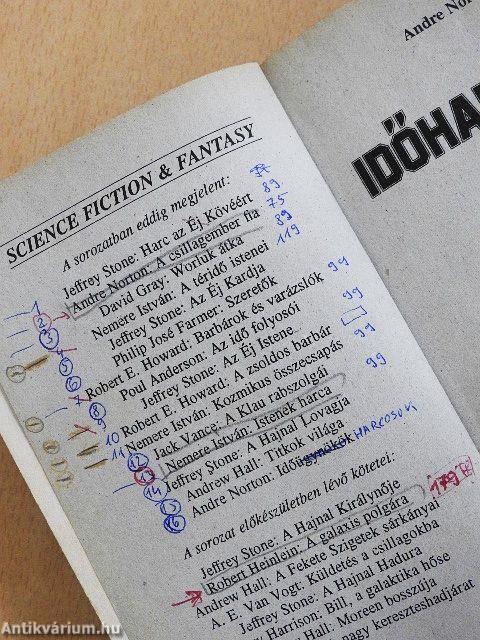 Andre Nor
IDŐHA
SCIENCE FICTION & FANTASY
A sorozatban eddig megjelent:
Jeffrey Stone: Harc az Éj Kövéért 89
1 Andre Norton: A csillagember fia 75
2 David Gray: Worluk átka 89
3 Nemere István: A téridő istenei 119
Jeffrey Stone: Az Éj Kardja
5 Philip José Farmer: Szeretők
6 Robert E. Howard: Barbárok és varázslók 99
Poul Anderson: Az idő folyosói
8 Jeffrey Stone: Az Éj Istene 99
Robert E. Howard: A zsoldos barbár
10 Nemere István: Kozmikus összecsapás 99
11 Jack Vance: A Klau rabszolgái
12 Nemere István: Istenek harca 99
13 Jeffrey Stone: A Hajnal Lovagja
14 Andrew Hall: Titkok világa
Andre Norton: Időügynökök HARCOSOK
16
A sorozat előkészületben lévő kötetei:
Jeffrey Stone: A Hajnal Királynője
Robert Heinlein: A galaxis polgára 179
Andrew Hall: A Fekete Szigetek sárkányai
A. E. Van Vogt: Küldetés a csillagokba
Jeffrey Stone: A Hajnal Hadura
Harrison: Bill, a galaktika hőse
Hall: Moreen bosszúja
nagy kereszteshadjárat
Antikvárium.hu